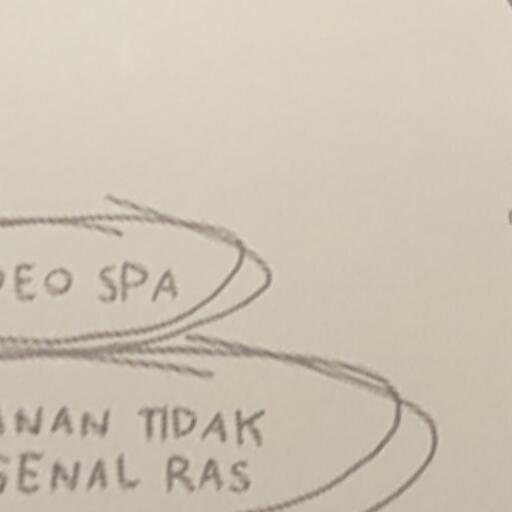 DEO SPA
ANAN TIDAK
GENAL RAS